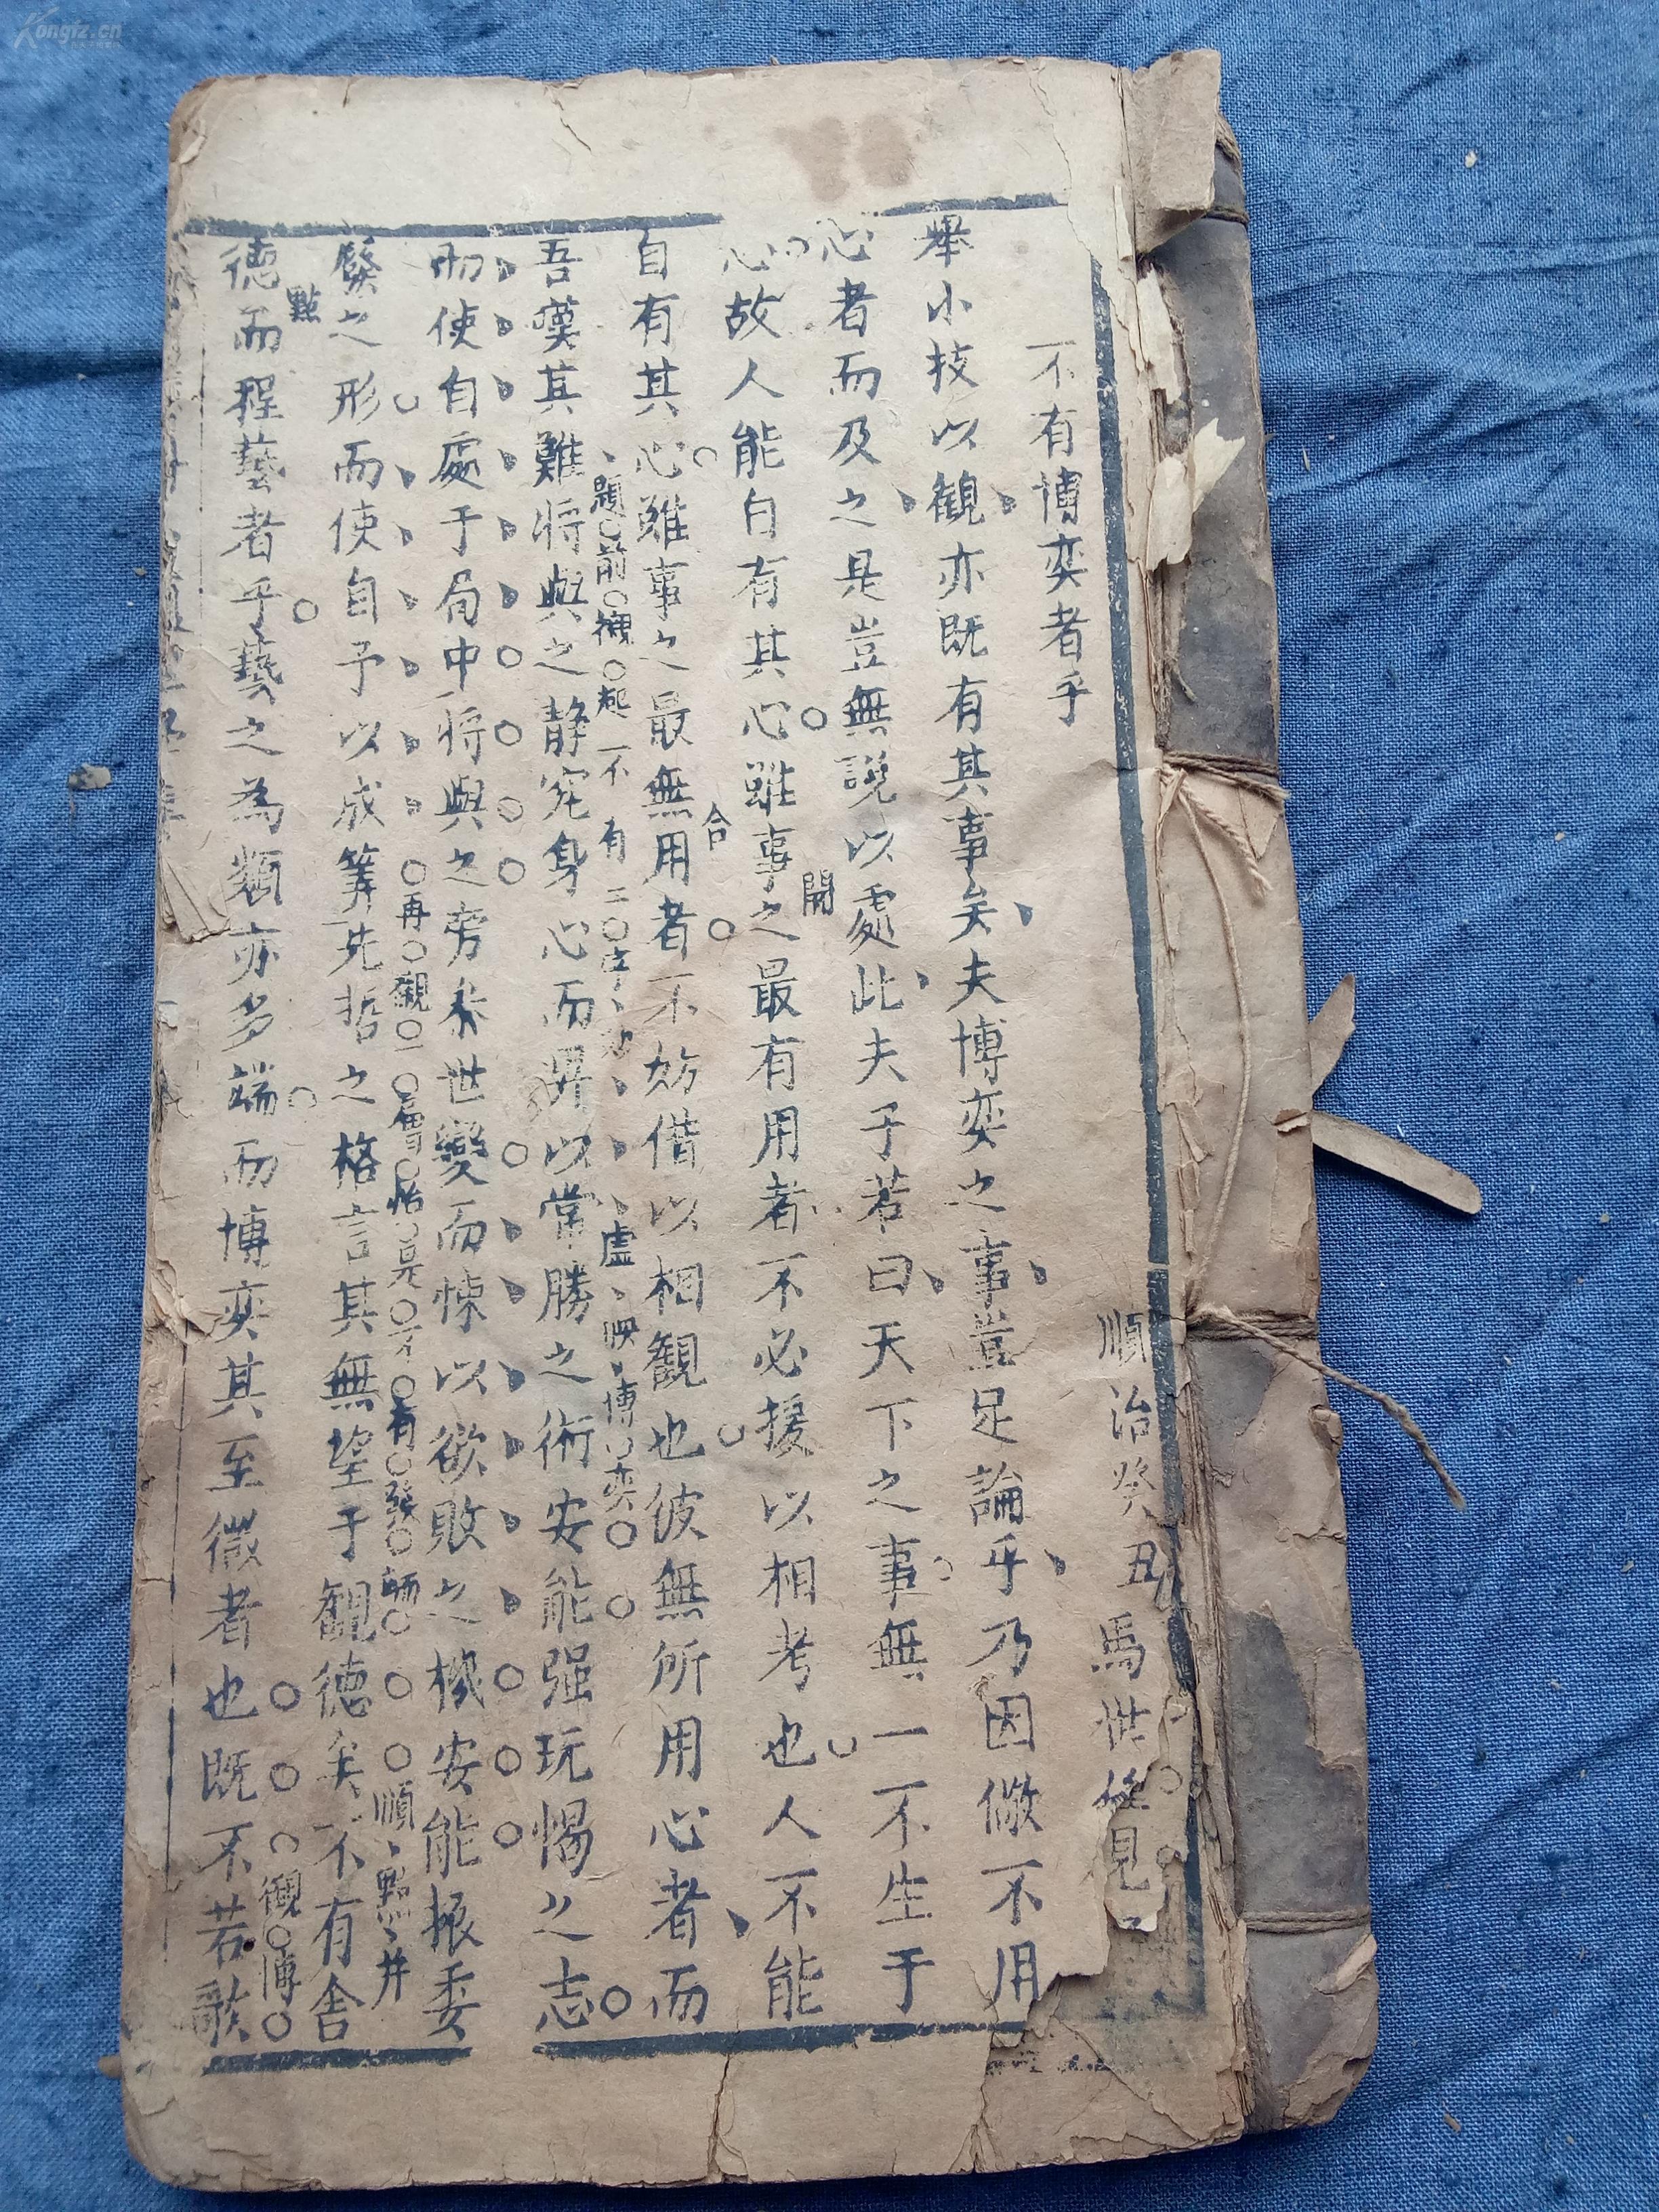 不有博奕者乎
順治癸丑 馬世俊見
舉小技以觀亦既有其事矣夫博奕之事豈足論乎乃因儆不用
心者而及之是豈無說以處此夫子若曰天下之事無一不生于
開
心故人能自有其心雖事之最有用者不必援以相考也人不能
合
自有其心雖事之最無用者不妨借以相觀也彼無所用心者而
題前襯起不有二字虛映博奕
吾嘆其難將與之静究身心而畀以當勝之術安能强玩愒之志
而使自處于局中將與之旁參世變而悚以欲敗之機安能振委
再觀一層怡是不有發師順點井
發之形而使自予以成筭先哲之格言其無望于觀德矣不有舍
點
德而程藝者乎藝之為類亦多端而博奕其至微者也既不若歌
襯博
Kongfz.cn